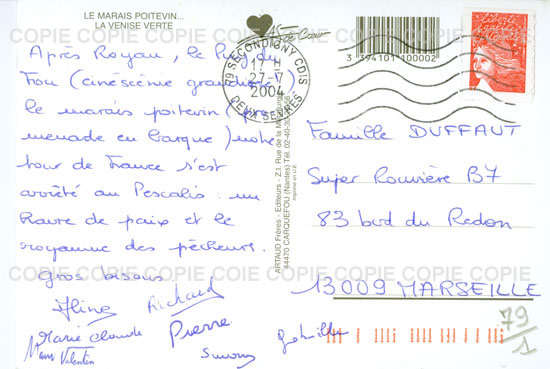 LE MARAIS POITEVIN...
LA VENISE VERTE
Après Royan, le Puy du
Fou (cinéscénie grandiose)
le marais poitevin (pro
menade en barque) notre
tour de France s'est
arrêté au Pescalis : un
havre de paix et le
royaume des pêcheurs.
Gros bisous
Aline Richard
Marie Claude Pierre
Mamy Valentin
As de Coeur
79 SECONDIGNY CDIS
17 H
27-7
2004
DEUX SEVRES
ARTAUD Frères - Editeurs - Z.I. Rue de la
44470 CARQUEFOU (Nantes) Tél. 02-40-30
Imprimé en U.E.
3 394101 100002
Famille DUFFAUT
Super Rouvière B7
83 bord du Redon
13009 MARSEILLE
79/1
COPIE COPIE COPIE COPIE COPIE COPIE